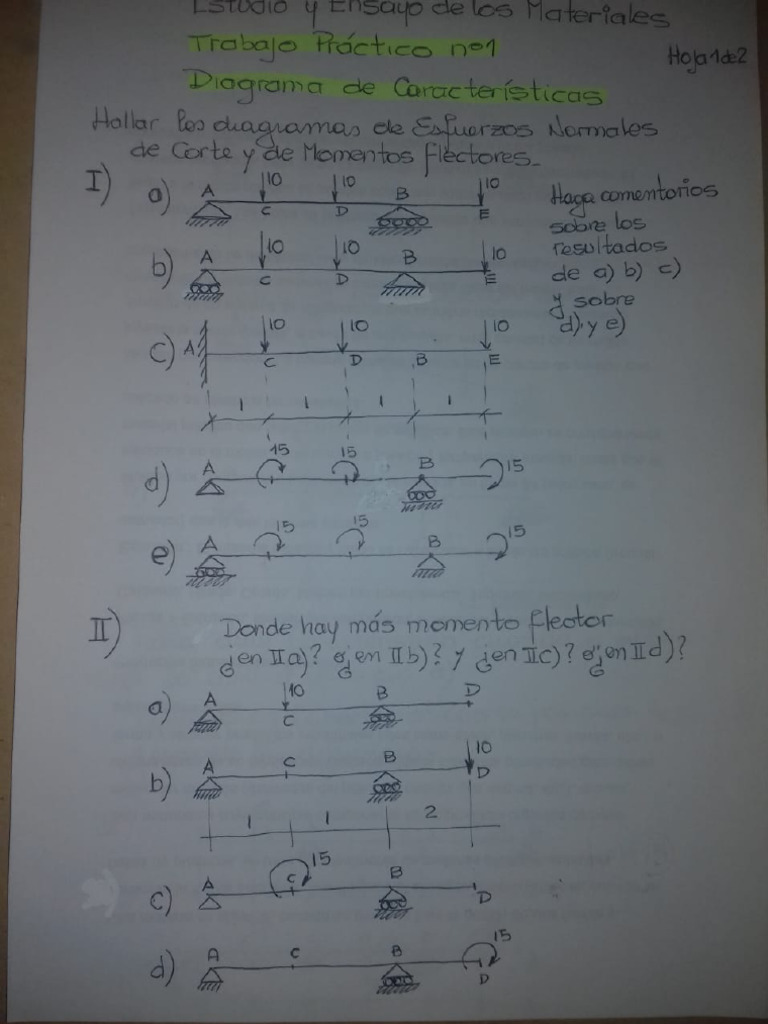 Estudio y Ensayo de los Materiales
Trabajo Práctico nº1
Hoja 1 de 2
Diagrama de Características
Hallar los diagramas de Esfuerzos Normales
de Corte y de Momentos flectores.
I) a) A 10 C 10 D B 10 E
Haga comentarios
sobre los
resultados
de a) b) c)
y sobre
d) y e)
b) A 10 C 10 D B 10 E
c) A 10 C 10 D B 10 E
1 1 1 1
d) A 15 15 B 15
e) A 15 15 B 15
II) Donde hay más momento flector
¿en IIa)? ó ¿en IIb)? y ¿en IIc)? ó ¿en IId)?
a) A 10 C B D
b) A C B 10 D
1 1 2
c) A C 15 B D
d) A C B 15 D